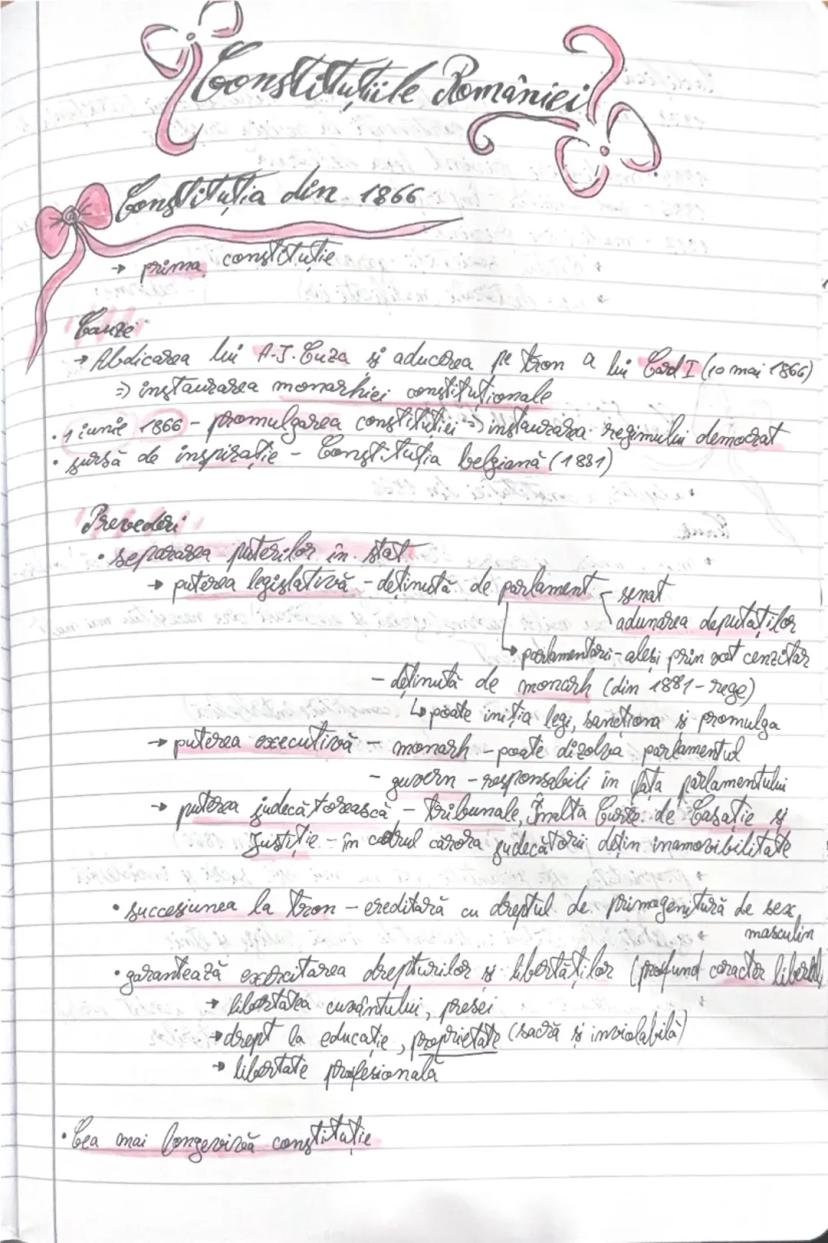 Constituțiile României
Constituția din 1866
→ prima constituție
Cauze:
→ Abdicarea lui A.I. Cuza și aducerea pe tron a lui Carol I (10 mai 1866)
⇒ instaurarea monarhiei constituționale
• 1 iunie 1866 - promulgarea constituției ⇒ instaurarea regimului democrat
• sursă de inspirație - Constituția belgiană (1831)
Prevederi
• separarea puterilor în stat
→ puterea legislativă - deținută de parlament - senat
adunarea deputaților
↳ parlamentari - aleși prin vot cenzitar
- deținută de monarh (din 1881 - rege)
↳ poate iniția legi, sancționa și promulga
→ puterea executivă - monarh - poate dizolva parlamentul
- guvern - responsabili în fața parlamentului
→ puterea judecătorească - tribunale, Înalta Curte de Casație și
Justiție - în cadrul cărora judecătorii dețin inamovibilitate
• succesiunea la tron - ereditară cu dreptul de primogenitură de sex
masculin
• garantează exercitarea drepturilor și libertăților (profund caracter liberal)
→ libertatea cuvântului, presei
→ drept la educație, proprietate (sacră și inviolabilă)
→ libertate profesională
• Cea mai longevivă constituție